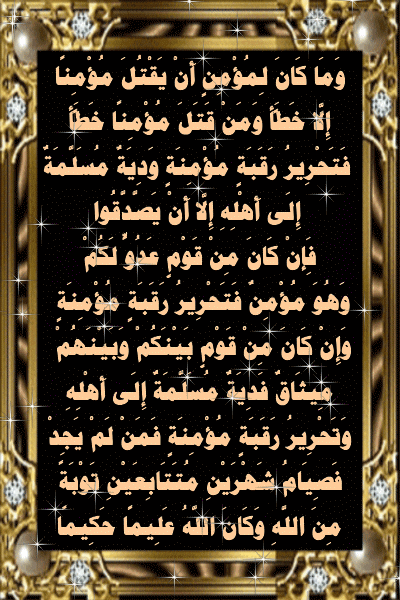 وَمَا كَانَ لِمُؤْمِنٍ أَنْ يَقْتُلَ مُؤْمِنًا
إِلَّا خَطَأً وَمَنْ قَتَلَ مُؤْمِنًا خَطَأً
فَتَحْرِيرُ رَقَبَةٍ مُؤْمِنَةٍ وَدِيَةٌ مُسَلَّمَةٌ
إِلَى أَهْلِهِ إِلَّا أَنْ يَصَّدَّقُوا
فَإِنْ كَانَ مِنْ قَوْمٍ عَدُوٍّ لَكُمْ
وَهُوَ مُؤْمِنٌ فَتَحْرِيرُ رَقَبَةٍ مُؤْمِنَةٍ
وَإِنْ كَانَ مِنْ قَوْمٍ بَيْنَكُمْ وَبَيْنَهُمْ
مِيثَاقٌ فَدِيَةٌ مُسَلَّمَةٌ إِلَى أَهْلِهِ
وَتَحْرِيرُ رَقَبَةٍ مُؤْمِنَةٍ فَمَنْ لَمْ يَجِدْ
فَصِيَامُ شَهْرَيْنِ مُتَتَابِعَيْنِ تَوْبَةً
مِنَ اللَّهِ وَكَانَ اللَّهُ عَلِيمًا حَكِيمًا